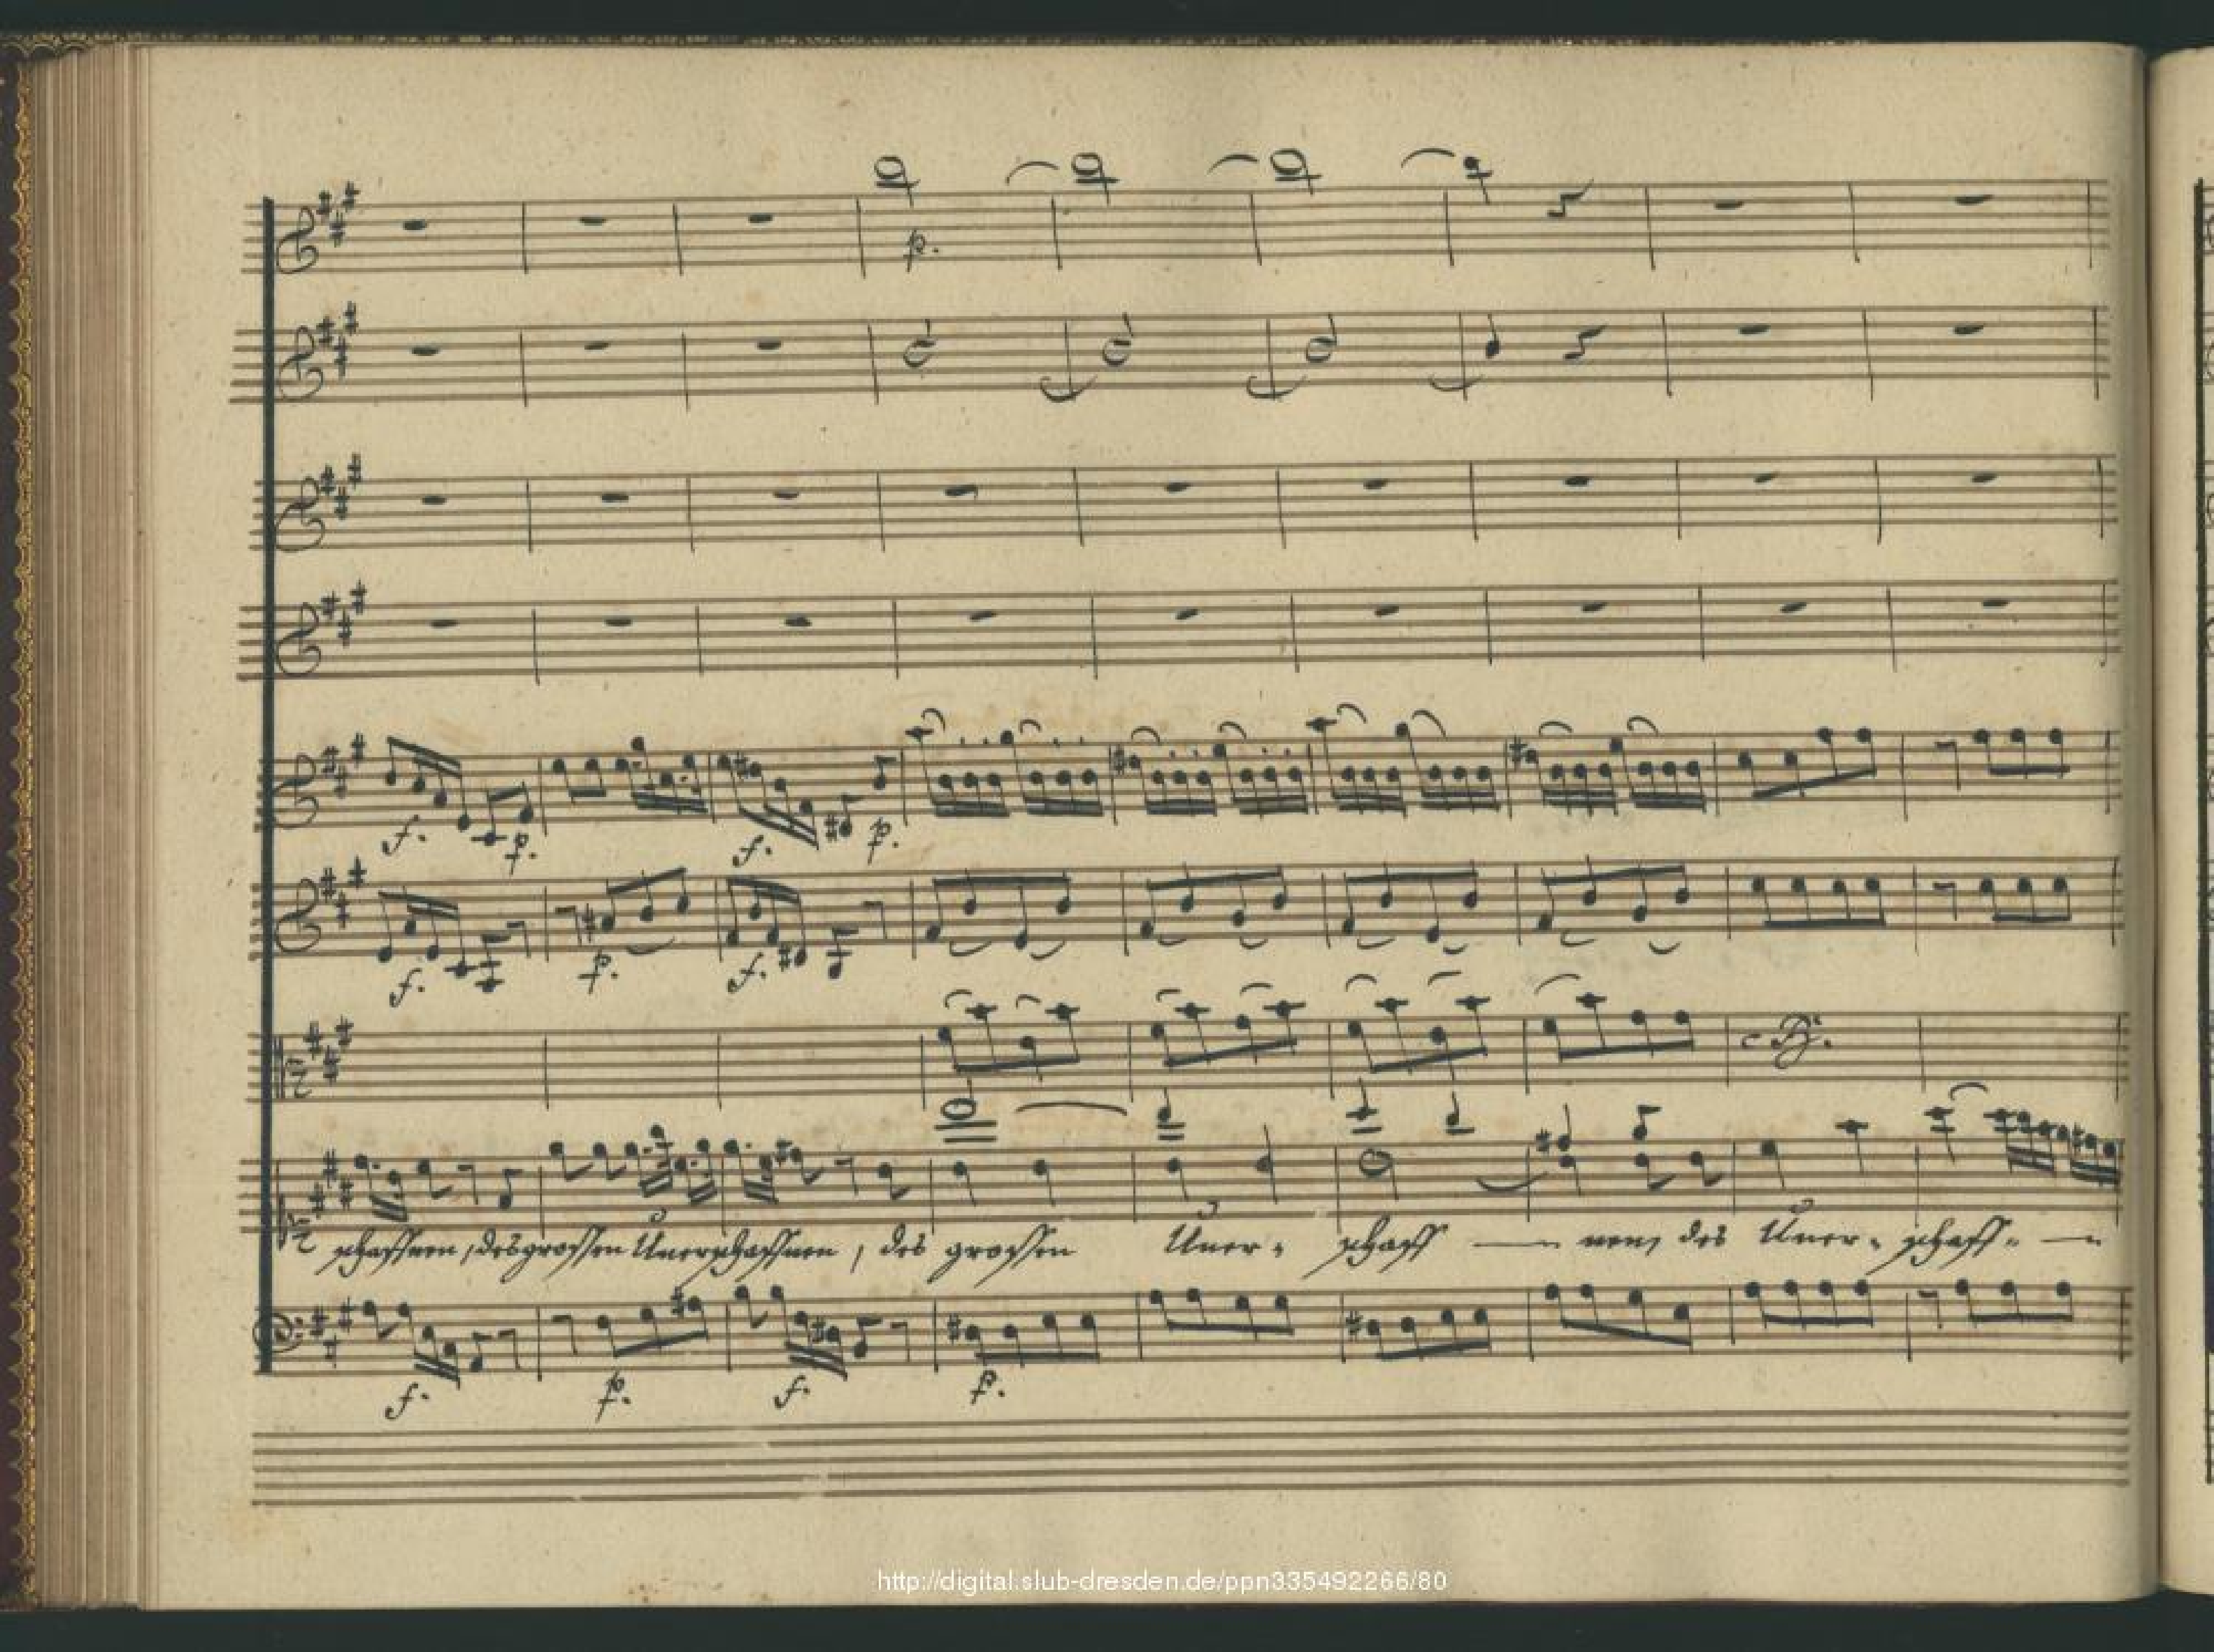 p.
f. p. f. p.
f. p. f.
c B.
schaffnen, des grossen Unerschaffnen, des grossen Uner- schaff — nen, des Uner- schaff- —
f. p. f. p.
http://digital.slub-dresden.de/ppn335492266/80